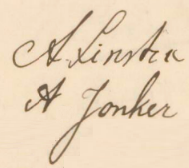 A. Linstra
A Jonker